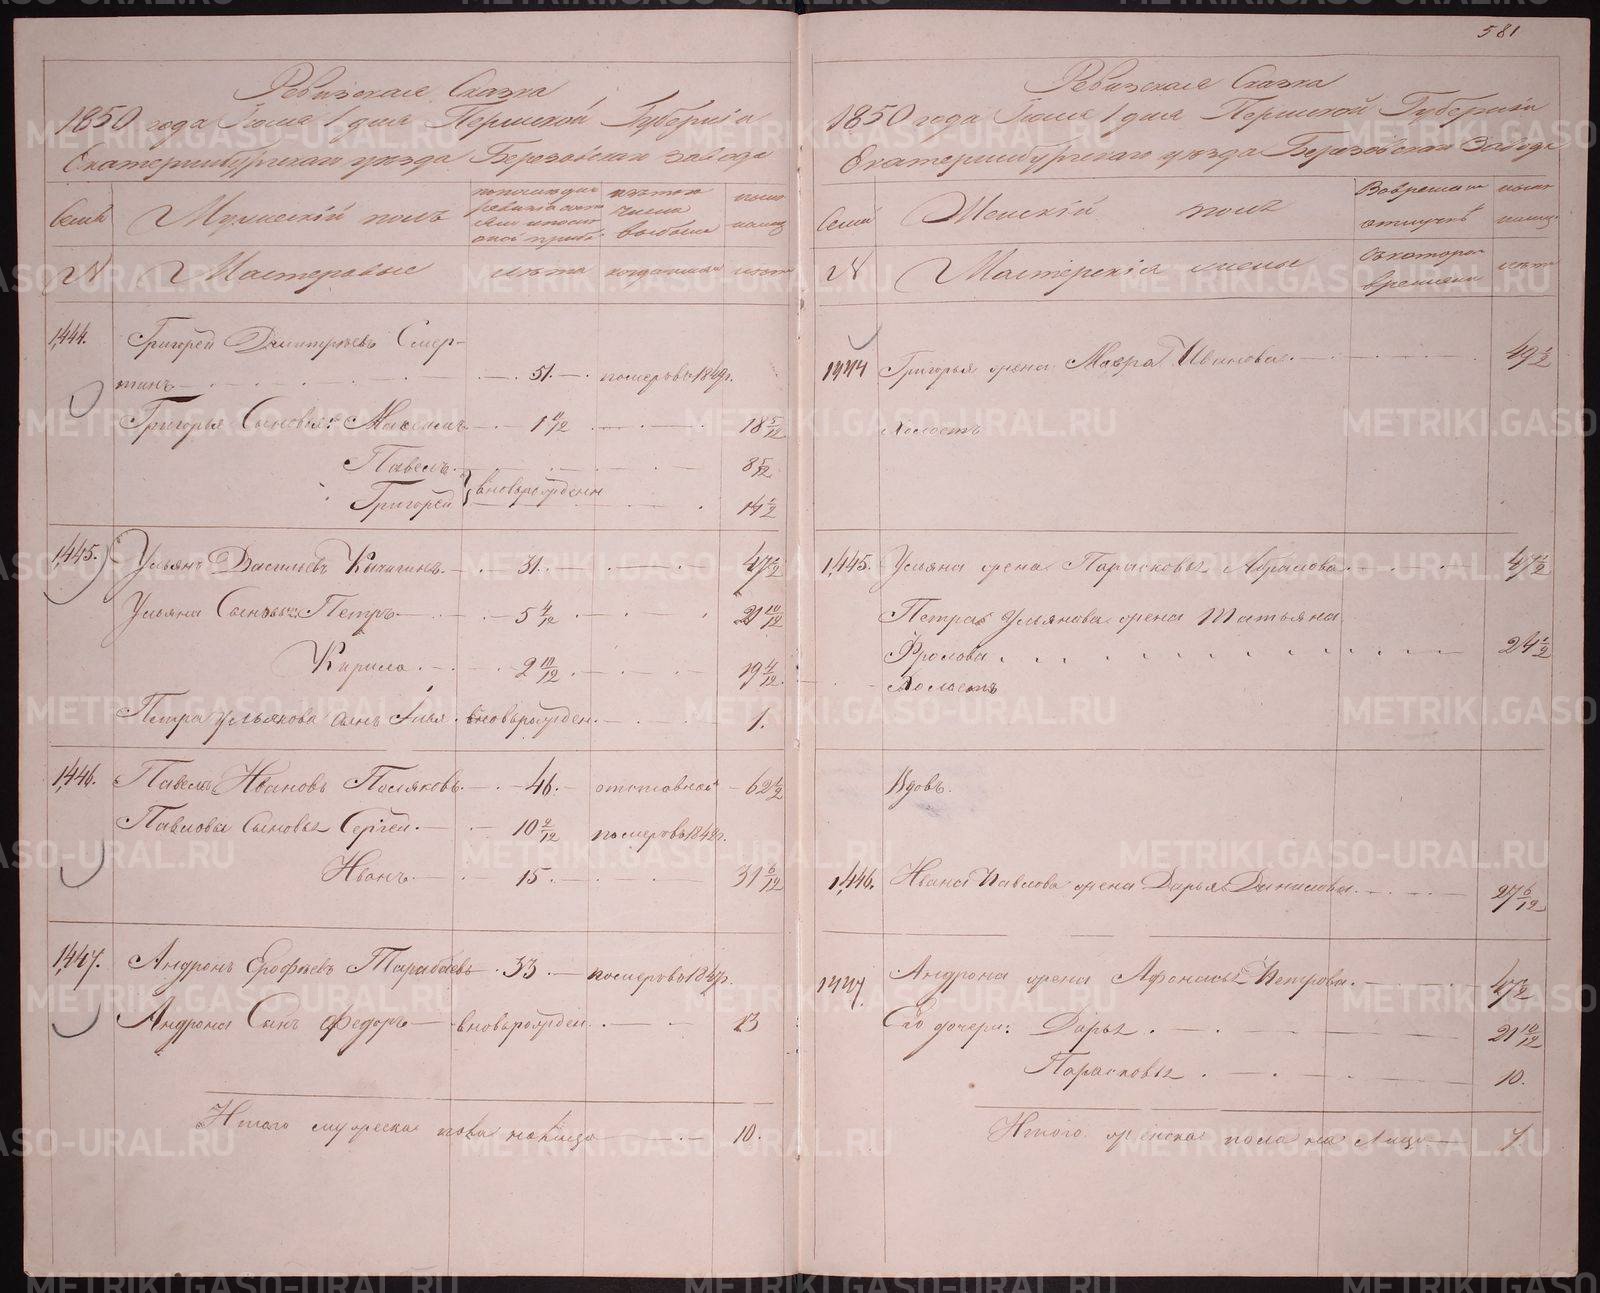 581
Ревизская Сказка
1850 года Июля 1 дня Пермской Губернiи
Екатеринбургскаго уезда Березовскаго завода
Семьи
Мужескiй полъ
по последней
ревизiи состояло
лета
N
Мастеровые
лета
когда именно
лета
1,444.
Григорей Дмитрiевъ Смер-
тинъ
51.
померъ въ 1849г.
Григорья Сыновья: Максимъ
1 4/12
18 5/12
Павелъ
8 5/12
Григорей
вновьрожденн
14 1/2
1,445.
Ульянъ Васильевъ Кичигинъ
31.
47 1/2
Ульяна Сыновья: Петръ
5 4/12
21 10/12
Кирило
2 10/12
19 4/12
Петра Ульянова сынъ Илья
вновьрожден.
1.
1,446.
Павелъ Ивановъ Поляковъ
46.
отставной
62 1/2
Павловы Сыновья Сергей
10 2/12
померъ въ 1848г.
Иванъ
15
31 6/12
1,447.
Андронъ Ерофеевъ Тарабаевъ
33
померъ въ 1849г.
Андрона Сынъ Федоръ
вновьрожден.
13
Итого мужеска пола налицо
10.
Ревизская Сказка
1850 года Июля 1 дня Пермской Губернiи
Екатеринбургскаго уезда Березовскаго Завода
Семьи
Женскiй полъ
Во временной
отлучке
N
Мастерскiя жены
Съ котораго
времени
лета
1444
Григорья жена Мавра Иванова
49 1/2
Холостъ
1,445.
Ульяна жена Парасковья Абрамова
47 1/2
Петра Ульянова жена Татьяна
Фролова
24 1/2
Холостъ
Вдовъ.
1,446.
Ивана Павлова жена Дарья Данилова
27 6/12
1447.
Андрона жена Афонасья Петрова
47 1/2
Его дочери: Дарья
21 10/12
Парасковья
10.
Итого женска пола на лицо
7.
METRIKI.GASO-URAL.RU